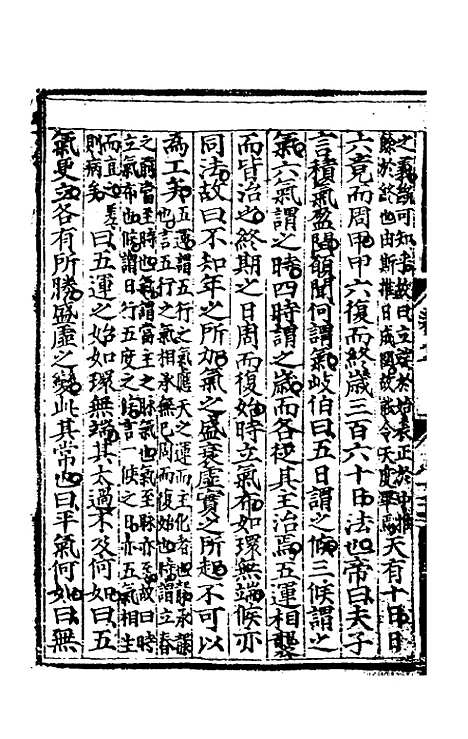 之義斷可知乎故曰立端於始表正於中推
餘於終也由斯推日成閏故能令天度畢焉天有十日日
六竟而周甲甲六復而終歲三百六十日法也帝曰夫子
言積氣盈閏願聞何謂氣岐伯曰五日謂之候三候謂之
氣六氣謂之時四時謂之歲而各從其主治焉五運相襲
而皆治之終期之日周而復始時立氣布如環無端候亦
同法故曰不知年之所加氣之盛衰虛實之所起不可以
爲工矣五運謂五行之氣應天之運而主化者也襲承謂
也言五行之氣相承無已周而復始也時謂立春
之前當至時也氣謂當主之脉氣也氣至脉亦至故曰時
立氣布也候謂日行五度之候言一候之日亦五氣相生
而直之差
則病矣曰五運之始如環無端其太過不及何如曰五
氣更立各有所勝盛虛之變此其常也曰平氣何如曰無